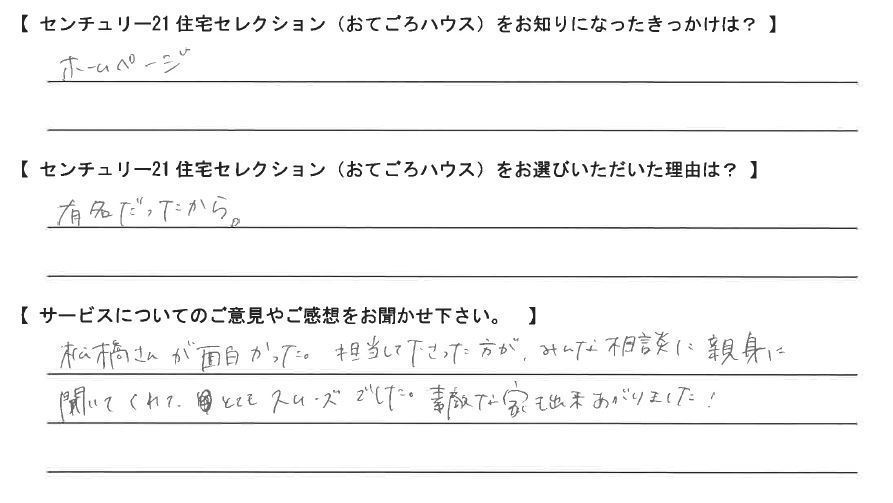 【 センチュリー21 住宅セレクション（おてごろハウス）をお知りになったきっかけは？ 】
ホームページ
【 センチュリー21 住宅セレクション（おてごろハウス）をお選びいただいた理由は？ 】
有名だったから。
【 サービスについてのご意見やご感想をお聞かせ下さい。 】
松橋さんが面白かった。担当して下さった方が、みんな相談に親身に
聞いてくれて、とてもスムーズでした。素敵な家も出来あがりました！